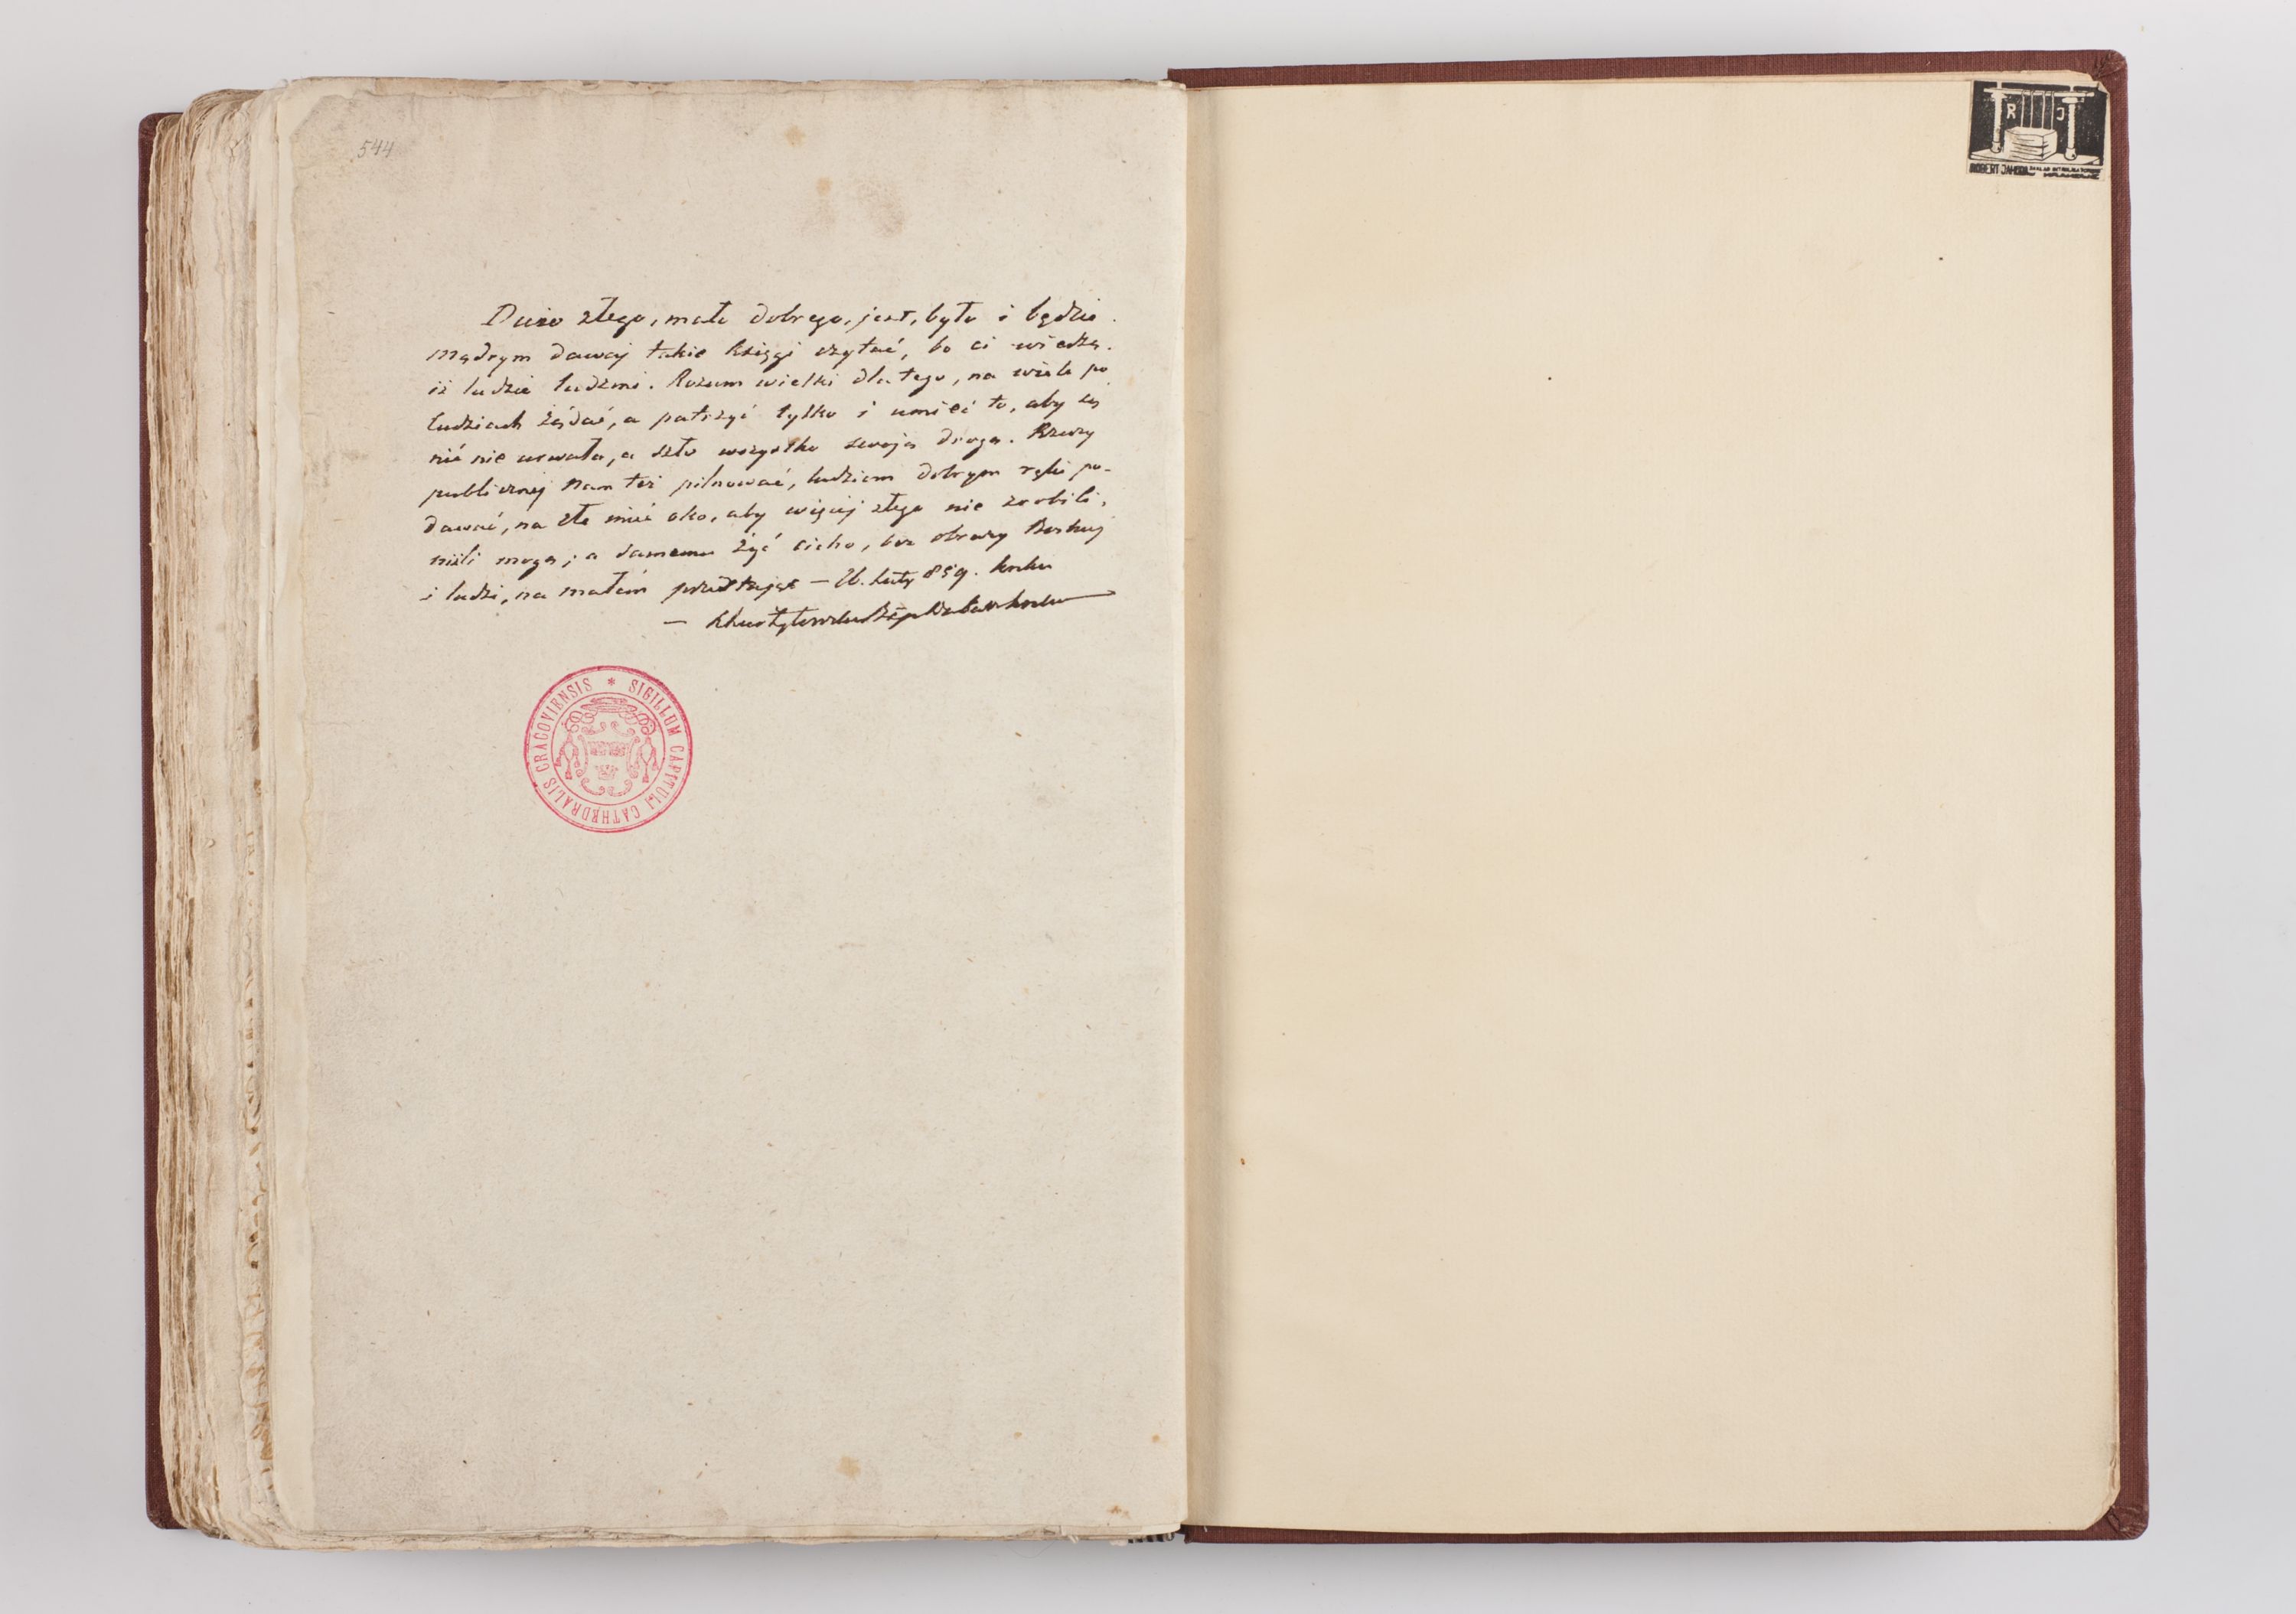 544
Dużo złego, mało dobrego, jest, było i będzie.
mądrym dawaj takie księgi czytać, bo ci wiedzą.
iż ludzie ludźmi. Rozum wielki dla tego, na wiele po
ludziach żądać, a patrzyć tylko i umieć to, aby się
nić nie urwała, a szło wszystko swoją drogą. Rzeczy
publicznej nam też pilnować, ludziom dobrym ręki po-
dawać, na złe mieć oko, aby więcej złego nie zrobili,
niżli mogą; a samemu żyć cicho, bez obrazy Boskiej
i ludzi, na małem przestając — 26. luty 859.
SIGILLUM CAPITULI CATHEDRALIS CRACOVIENSIS *
R J
ROBERT JAHODA